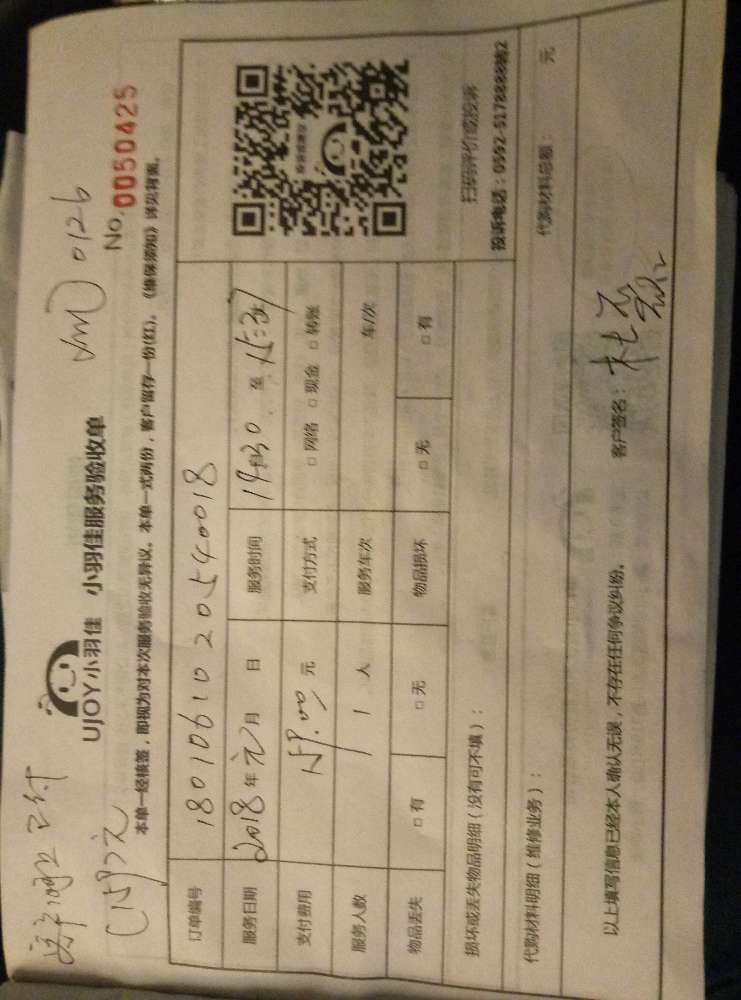 UJOY小羽佳 小羽佳服务验收单
0126
No. 0050425
本单一经核签，即视为对本次服务验收无异议。本单一式两份，客户留存一份(红)。《维保须知》详见背面。
订单编号 180106102054 0018
服务日期 2018 年 元 月 日 服务时间 至 15:37
支付费用 159.00 元 支付方式 □ 网络 □ 现金 □ 转账
服务人数 1 人 服务车次 车/次
物品丢失 □ 有 □ 无 物品损坏 □ 无 □ 有
扫码评价或投诉
投诉电话：0592-5178888转2
损坏或丢失物品明细（没有可不填）：
代购材料明细（维修业务）： 代购材料总额： 元
以上填写信息已经本人确认无误，不存在任何争议纠纷。 客户签名：